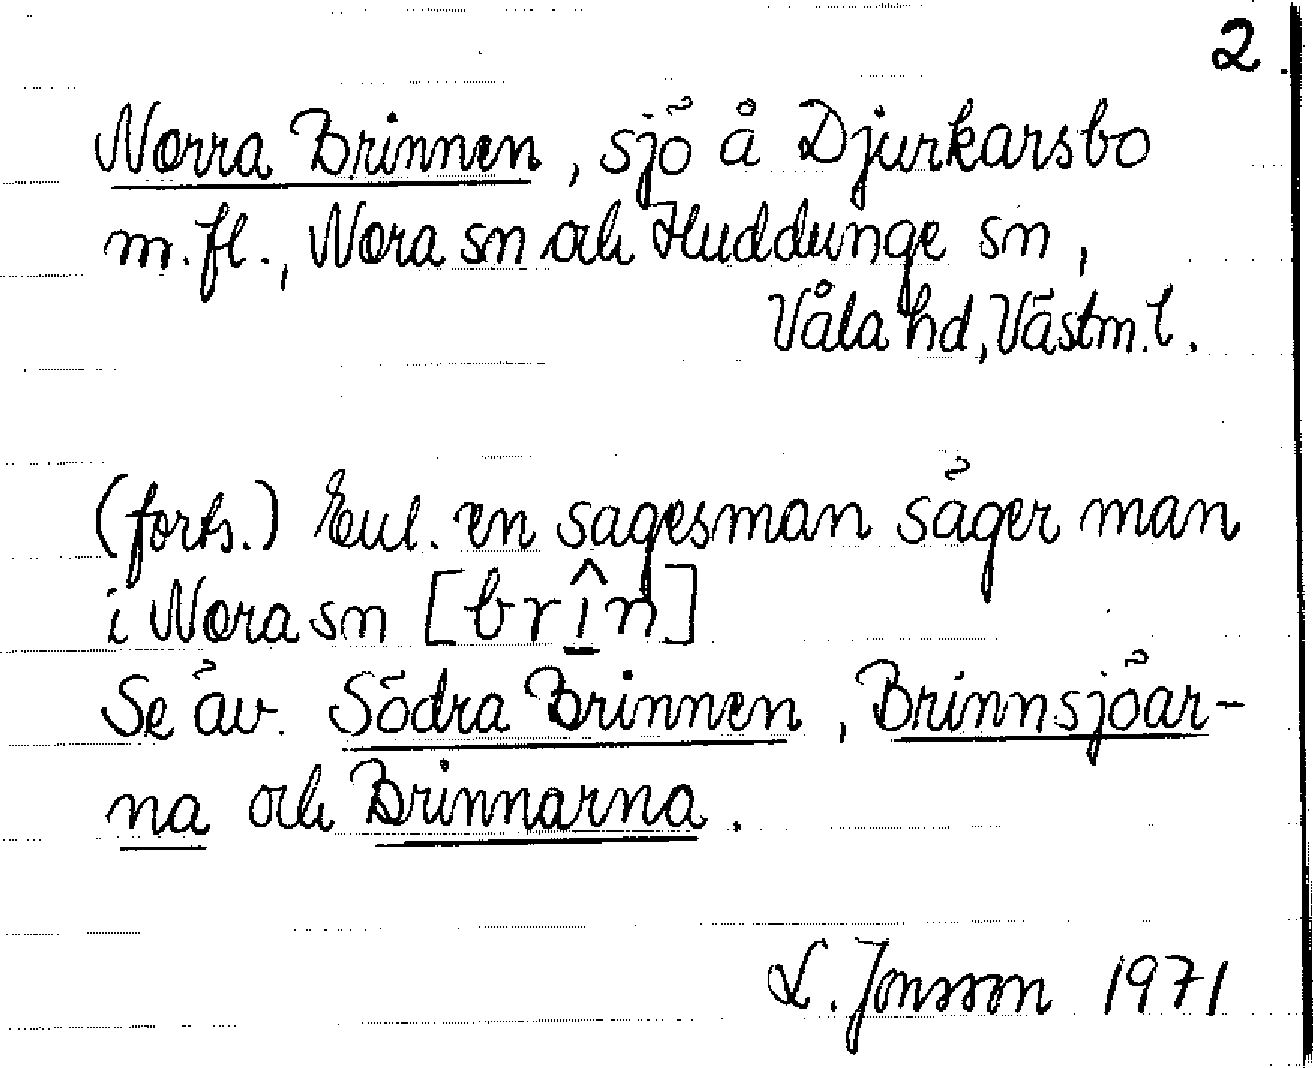 2.
Norra Brinnen, sjö å Djurkarsbo
m.fl., Nora sn och Huddunge sn,
Våla hd, Västm. l.
(forts.) Enl. en sagesman säger man
i Nora sn [brı̲̂n]
Se äv. Södra Brinnen, Brinnsjöar-
na och Brinnarna.
L. Jonsson 1971